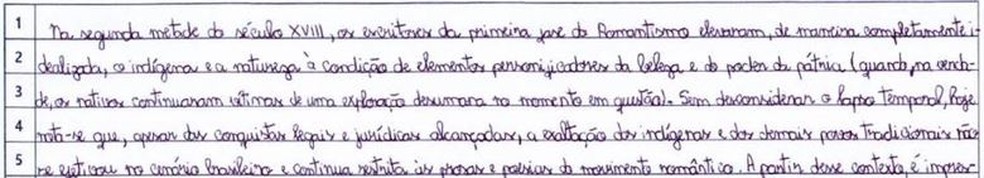 1 Na segunda metade do século XVIII, os escritores da primeira fase do Romantismo elevaram, de maneira completamente i-
2 dealizada, o indígena e a natureza à condição de elementos personificadores da beleza e do poder da pátria (quando, na verda-
3 de, os nativos continuavam vítimas de uma exploração desumana no momento em questão). Sem desconsiderar o lapso temporal, hoje
4 nota-se que, apesar das conquistas legais e jurídicas alcançadas, a exaltação dos indígenas e dos demais povos tradicionais não
5 se efetivou no cenário brasileiro e continua restrita às prosas e poesias do movimento romântico. A partir desse contexto, é impres-